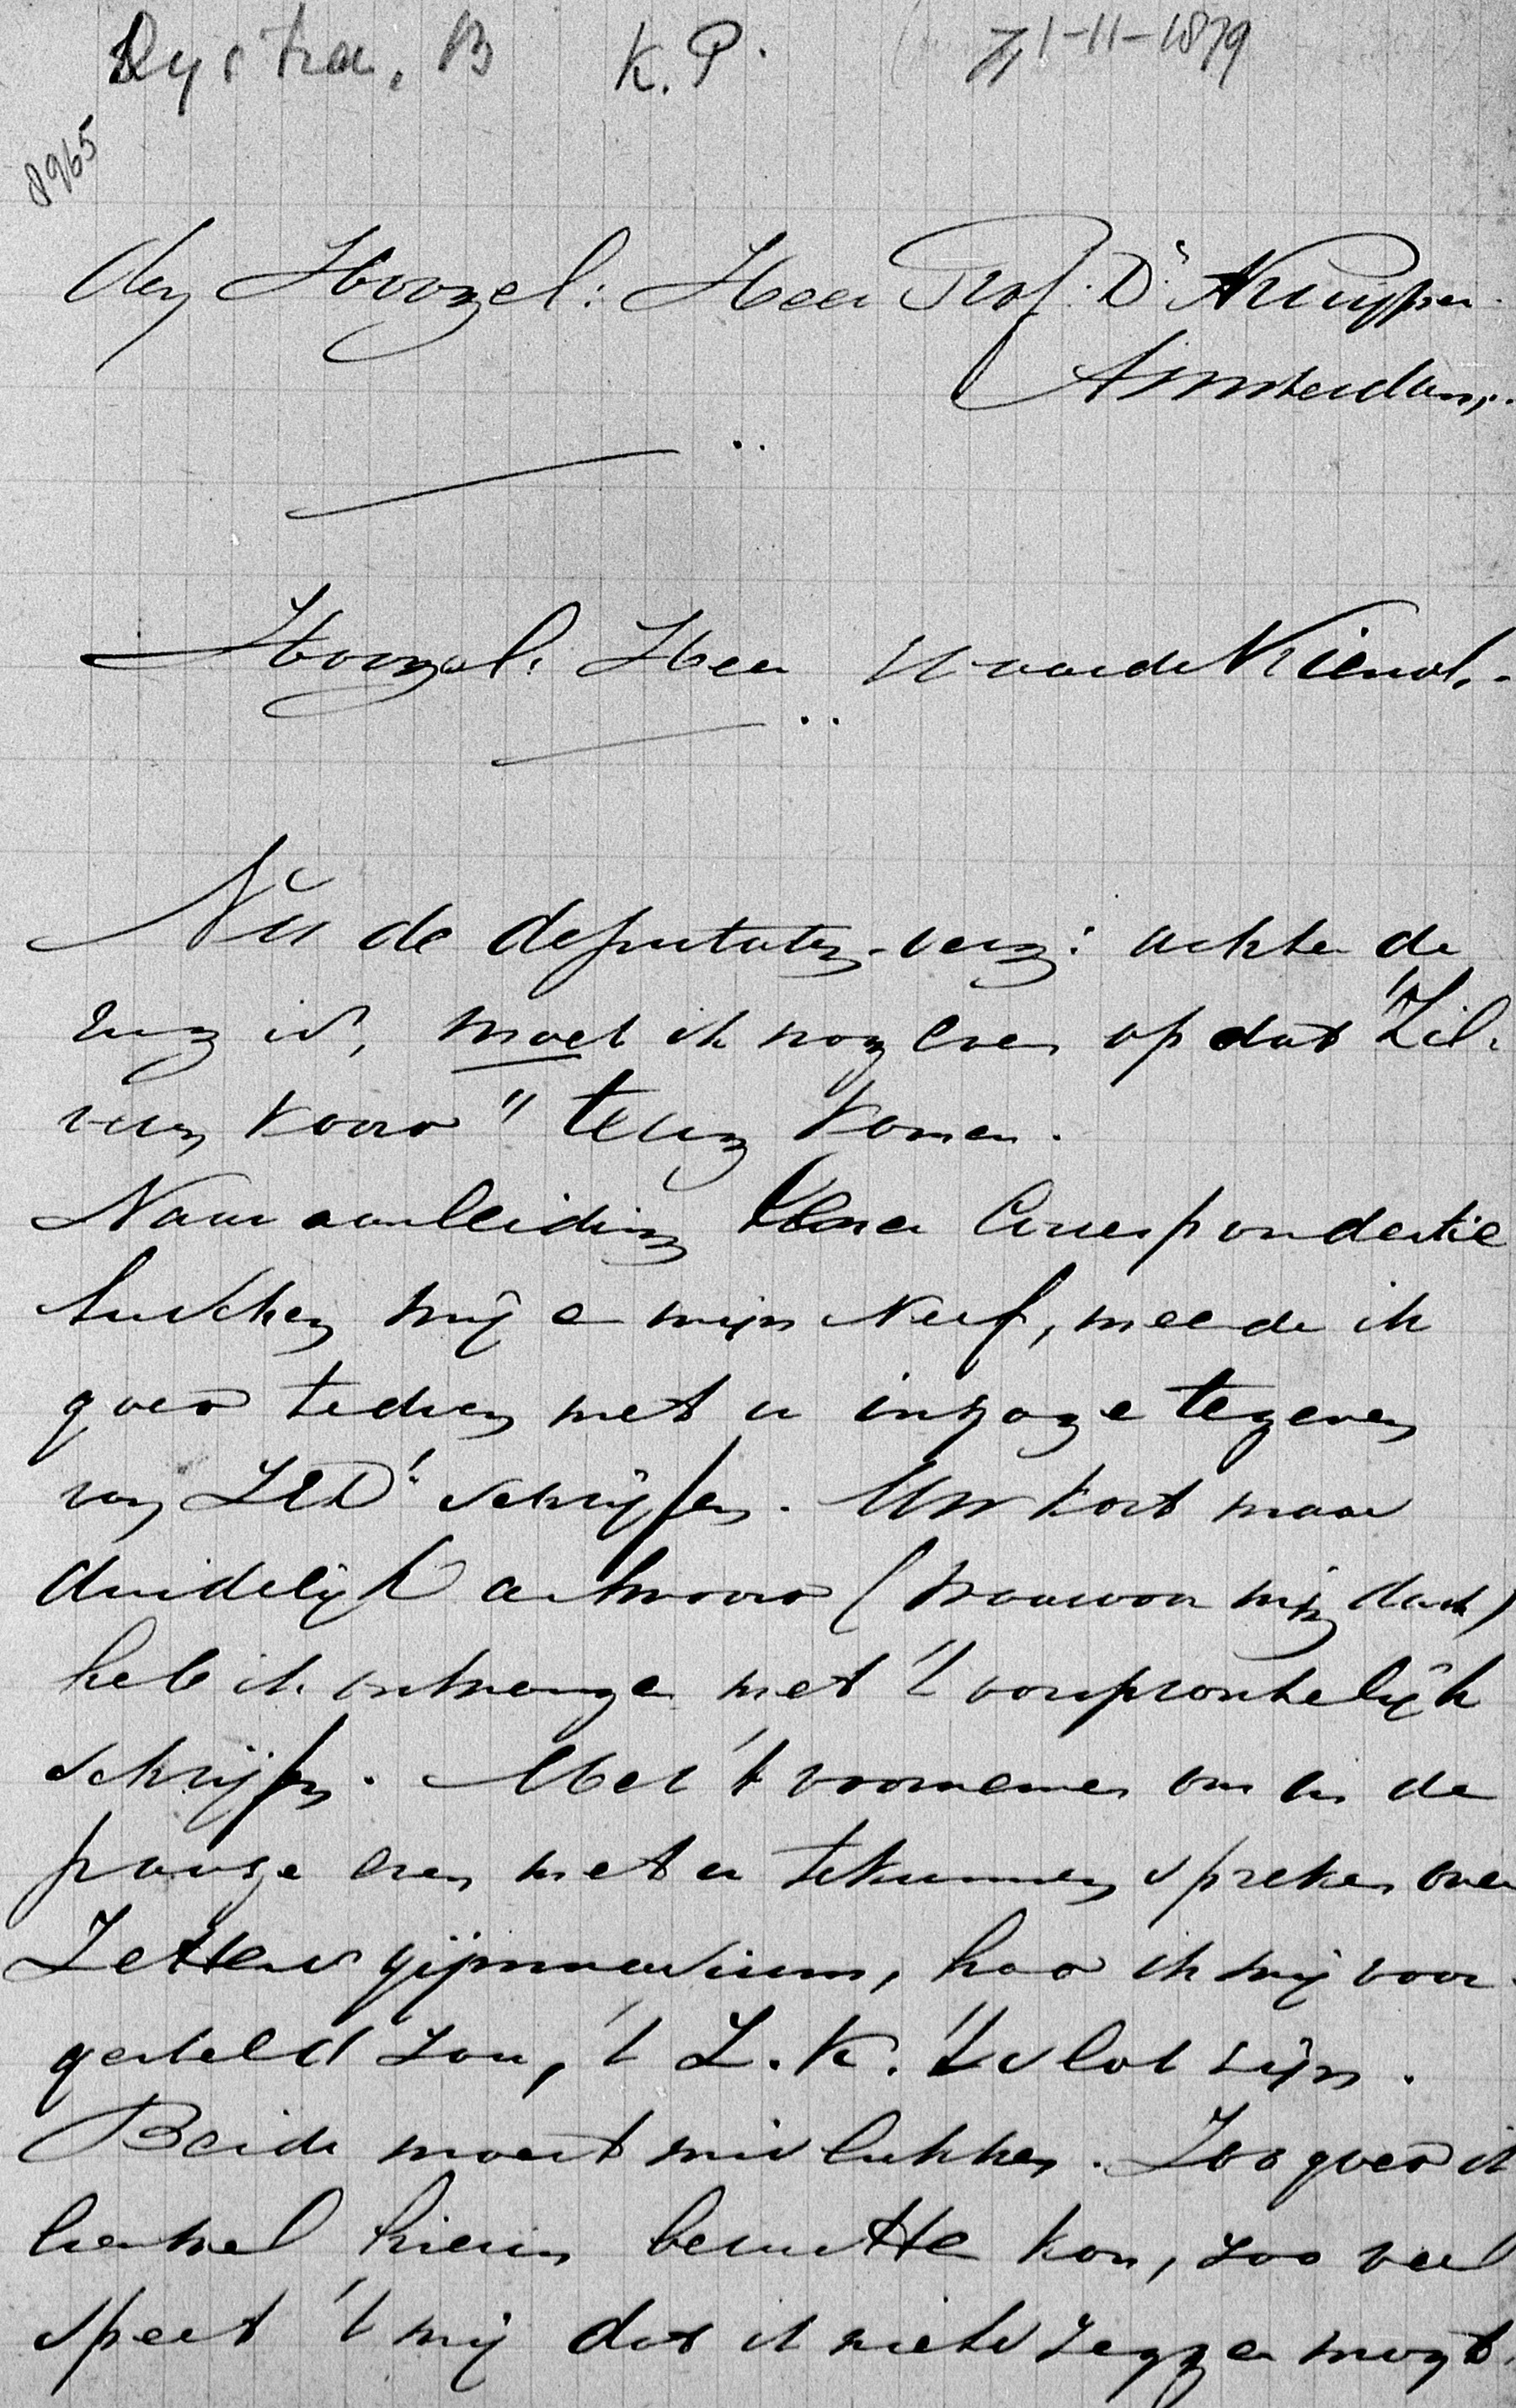 Dystra, B K.P. 1-11-1879
8965
den Hoogel: Heer Prof. Dr. A Kuyper.
Amsterdam,.
Hoogel: Heer Waarde Vriend,.
Nu de deputaten-verg: achter de
rug is, moet ik nog even op dat "Zil-
veren Koord" terug komen.
Naar aanleiding correspondentie
tusschen mij en mijn Neef, meende ik
goed te doen met u inzage te geven
van ZED: schrijfen. Uw kort maar
duidelijk antwoord (waarvoor mijn dank)
heb ik ontvangen met 't oorspronkelijk
schrijfen. Met 't voornemen om in de
pauze even met u te kunnen spreken over
Zettens gijmnasium, had ik mij voor-
gesteld zou, 't Z.K. 't slot zijn.
Beide moest mislukken. Zoo goed ik
hierin berusten kon, zoo veel
speet 't mij dat ik niets zeggen mogt.